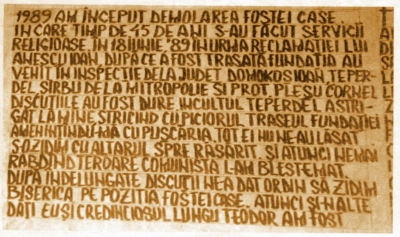 1989 AM ÎNCEPUT DEMOLAREA FOSTEI CASE.
IN CARE TIMP DE 45 DE ANI S-AU FĂCUT SERVICII
RELIGIOASE. IN 18 IUNIE '89 IN URMA RECLAMAȚIEI LUI
ANESCU IOAN, DUPĂ CE A FOST TRASATĂ FUNDAȚIA AU
VENIT IN INSPECTIE DE LA JUDET DOMOKOS IOAN, TEPER-
DEL SIRBU DE LA MITROPOLIE ȘI PROT. PLEȘU CORNEL
DISCUȚIILE AU FOST DURE. INCULTUL TEPERDEL A STRI-
GAT LA MINE STRICIND CU PICIORUL TRASEUL FUNDAȚIEI
AMENINȚINDU-MĂ CU PUȘCĂRIA. TOT EI NU NE-AU LĂSAT
S-O ZIDIM CU ALTARUL SPRE RĂSĂRIT. ȘI ATUNCI NEMAI
RĂBDIND TEROARE COMUNISTĂ L-AM BLESTEMAT.
DUPĂ INDELUNGATE DISCUȚII NE-A DAT ORDIN SĂ ZIDIM
BISERICA PE POZIȚIA FOSTEI CASE. ATUNCI ȘI-N ALTE
DĂȚI EU ȘI CREDINCIOSUL LUNGU TEODOR AM FOST